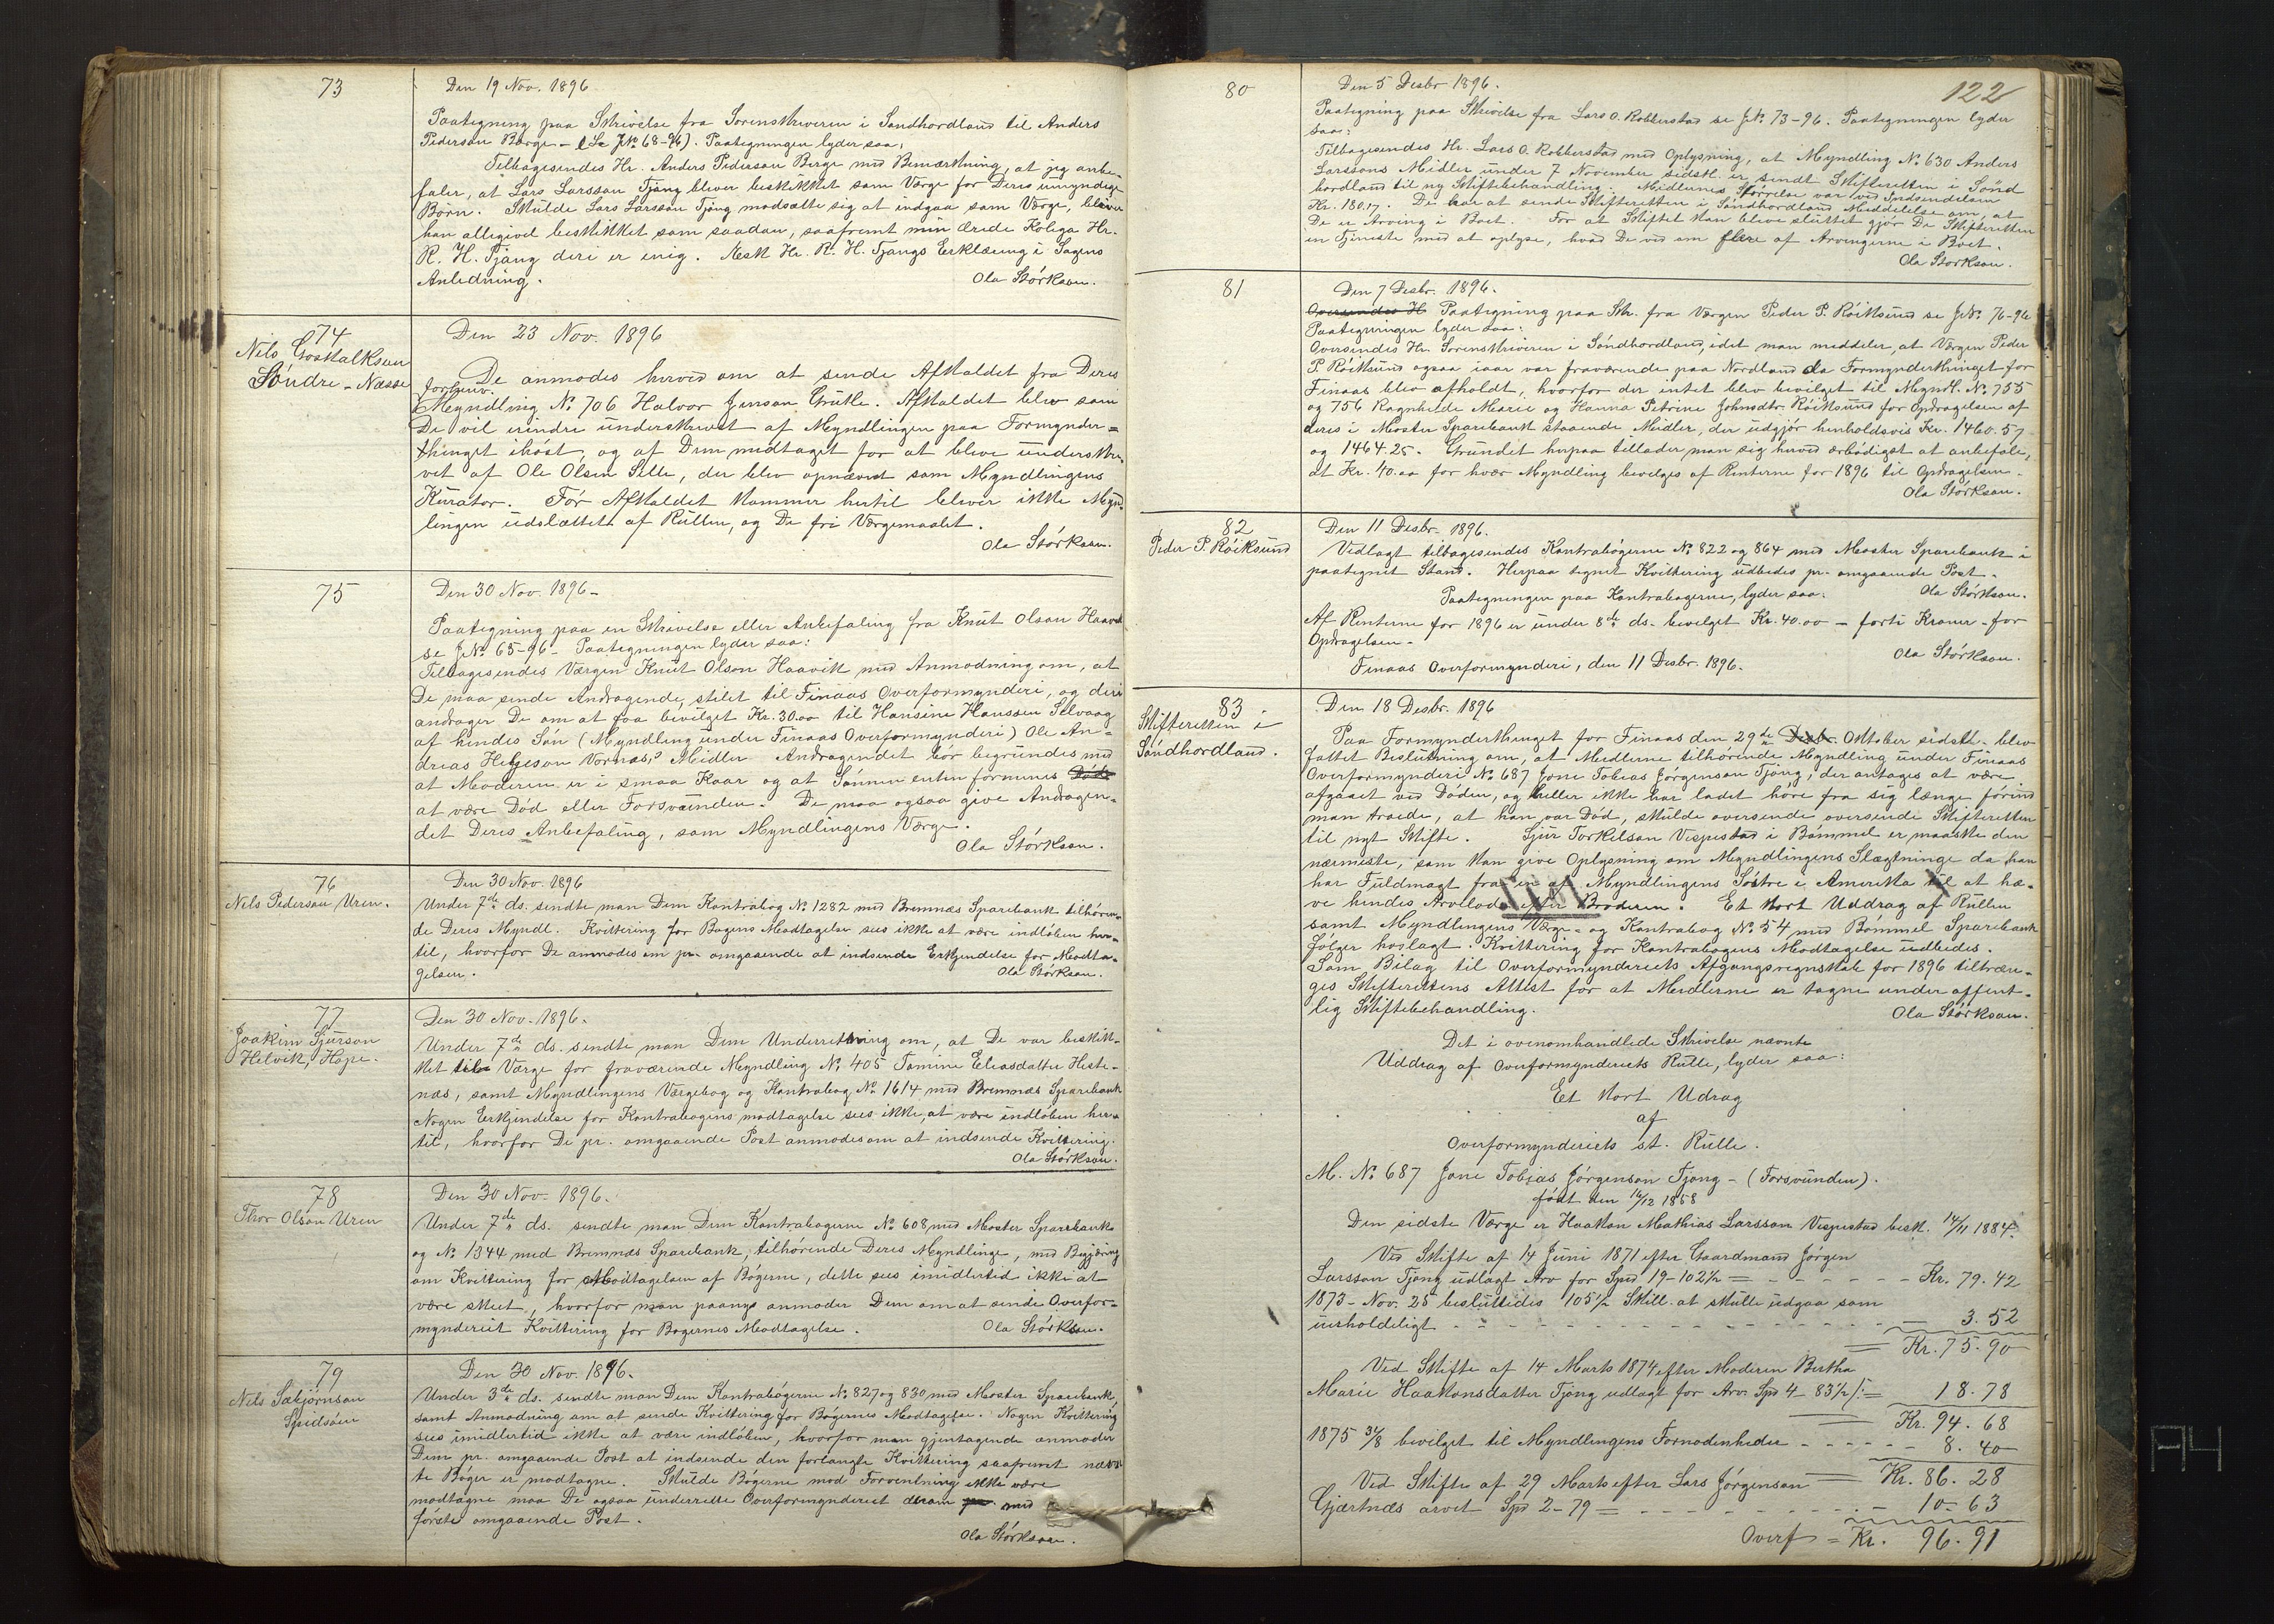 73
Den 19 Nov. 1896
Paategning paa Skrivelse fra Sorenskriveren i Søndhordland til Anders
Pederson Børge - (Se J№ 68-96). Paategningen lyder saa:
Tilbagesendes Hr. Anders Pederson Berge med Bemærkning, at jeg anbe-
faler, at Lars Larsson Tjong bliver beskikket som Værge for Deres umyndige
Børn. Skulde Lars Larsson Tjong modsætte sig at indgaa som Værge, bliver
han alligivel beskikket som saadan, saafremt min ærede Kolega Hr.
R. H. Tjong deri er enig. Æsk Hr. R. H. Tjongs Erklæring i Sagens
Anledning.
Ola Størkson.
74
Nils Goskalkson
Søndre-Næsse
Den 23 Nov. 1896
De anmodes herved om at sende Afkaldet fra Deres
forhenv.
Myndling № 706 Halvor Jenson Grutle. Afkaldet blev som
De vil erindre underskrevet af Myndlingen paa Formynder=
thinget ihøst, og af Dem medtaget for at bleve underskre-
vet af Ole Olsen Selle, der blev opnævnt som Myndlingens
Kurator. Før Afkaldet kommer hertil bliver ikke Mynd-
lingen udslættet af Rullen, og De fri Værgemaalet.
Ola Størkson.
75
Den 30 Nov. 1896-
Paategning paa en Skrivelse eller Anbefaling fra Knut Olson Haavik
se J№ 65-96- Paategningen lyder saa:
Tilbagesendes Værgen Knut Olson Haavik med Anmodning om, at
De maa sende Andragende, stilet til Finaas Overformynderi, og deri
andrager De om at faa bevilget Kr. 30.00 til Hansine Hanssen Selvaag
af hendes Søn (Myndling under Finaas Overformynderi) Ole An-
dreas Helgeson Vornæs' Midler. Andragendet bør begrundes med
at Moderen er i smaa Kaar og at Sønnen enten formenes Død
at være Død eller Forsvunden. De maa ogsaa give Andragen-
det Deres Anbefaling, som Myndlingens Værge.
Ola Størkson.
76
Nils Pederson Uren.
Den 30 Nov. 1896
Under 7de ds. sendte man Dem Kontrabog № 1282 med Bremnæs Sparebank tilhøren-
de Deres Myndl. Kvittering for Bogens Modtagelse sees ikke at være indløben her-
til, hvorfor De anmodes om pr. omgaaende at indsende Erkjendelse for Modta-
gelsen.
Ola Størkson.
77
Joakim Sjurson
Helvik, Hope.
Den 30 Nov. 1896.
Under 7de ds. sendte man Dem Underretning om, at De var beskik-
ket til Værge for fraværende Myndling № 405 Tomine Eliasdatter Heste-
næs, samt Myndlingens Værgebog og Kontrabog № 1614 med Bremnæs Sparebank
Nogen Erkjendelse for Kontrabogens modtagelse sees ikke, at være indløben her-
til, hvorfor De pr. omgaaende Post anmodes om at indsende Kvittering.
Ola Størkson.
78
Thor Olson Uren
Den 30 Nov. 1896.
Under 7de ds. sendte man Dem Kontrabogerne № 608 med Moster Sparebank
og № 1344 med Bremnæs Sparebank, tilhørende Deres Myndlinge, med Begjæring
om Kvittering for Modtagelsen af Bøgerne, dette sees imidlertid ikke at
være skeet, hvorfor man paany anmoder Dem om at sende Overfor-
mynderiet Kvittering for Bogernes Modtagelse.
Ola Størkson.
79
Nils Sæbjørnson
Spidsøen
Den 30 Nov. 1896.
Under 3de ds. sendte man Dem Kontrabøgerne № 827 og 830 med Moster Sparebank,
samt Anmodning om at sende Kvittering for Bøgernes Modtagelse. Nogen Kvittering
sees imidlertid ikke at være indløben, hvorfor man gjentagende anmoder
Dem pr. omgaaende Post at indsende den forlangte Kvittering saafremt nævn-
te Bøger er modtagne. Skulde Bøgerne mod Forventning ikke være
modtagne maa De ogsaa underrette Overformynderiet derom pr. med
første omgaaende Post.
Ola Størkson.
122
80
Den 5 Desbr 1896.
Paategning paa Skrivelse fra Lars O. Robberstad se J№ 73-96. Paategningen lyder
saa:
Tilbagesendes Hr. Lars O. Robberstad med Oplysning, at Myndling № 630 Anders
Larssons Midler under 7 November sidstl. er sendt Skifteretten i Sønd
hordland til ny Skiftebehandling. Midlernes Størrelse var ved Indsendelsen
Kr. 180.17. De bør at sende Skifteretten i Søndhordland Meddelelse om, at
De er Arving i Boet. For at Skiftet kan bleve sluttet gjør De Skifteretten
en Tjeneste med at oplyse, hvad De ved om flere af Arvingerne i Boet.
Ola Størkson.
81
Den 7 Desbr. 1896.
Oversendes H Paategning paa Skr. fra Værgen Peder P. Røiksund se J№ 76-96
Paategningen lyder saa:
Oversendes Hr. Sorenskriveren i Søndhordland, idet man meddeler, at Værgen Peder
P. Røiksund ogsaa iaar var fraværende paa Nordland da Formynderthinget for
Finaas blev afholdt, hvorfor der intet blev bevilget til Myndl. № 755
og 756 Ragnhilde Marie og Hanna Petrine Johnsdtr. Røiksund for Opdragelsen af
deres i Moster Sparebank staaende Midler, der udgjør henholdsvis Kr. 1460.57
og 1464.25. Grundet herpaa tillader man sig herved ærbødigst at anbefale,
at Kr. 40.00 for hver Myndling bevilges af Renterne for 1896 til Opdragelsen.
Ola Størkson.
82
Peder P. Røiksund
Den 11 Desbr. 1896.
Vedlagt tilbagesendes Kontrabøgerne № 822 og 864 med Moster Sparebank i
paategnet Stand. Herpaa tegnet Kvittering udbedes pr. omgaaende Post.
Ola Størkson.
Paategningen paa Kontrabøgerne, lyder saa:
Af Renterne for 1896 er under 8de ds. bevilget Kr. 40.00 - forti Kroner - for
Opdragelsen.
Ola Størkson.
Finaas Overformynderi, den 11 Desbr. 1896.
83
Skifteretten i
Søndhordland.
Den 18 Desbr. 1896
Paa Formynderthinget for Finaas den 29de Desbr. Oktober sidstl. blev
fattet Beslutning om, at Midlerne tilhørende Myndling under Finaas
Overformynderi № 687 Jone Tobias Jørgenson Tjong, der antages at være
afgaaet ved Døden, og heller ikke har ladet høre fra sig længe førind
man troede, at han var Død, skulde oversende oversende Skifteretten
til nyt Skifte. Sjur Torkelson Vespestad i Bømmel er maaske den
nærmeste, som kan give Oplysning om Myndlingens Slægtninge da han
har Fuldmagt fra en af Myndlingens Søstre i Amerika til at hæ-
ve hendes Arvelod efter Broderen. Et kort Uddrag af Rullen
samt Myndlingens Værge- og Kontrabog № 54 med Bømmel Sparebank
følger hoslagt. Kvittering for Kontrabogens Modtagelse udbedes.
Som Bilag til Overformynderiets Afgangsregnskab for 1896 tiltræn-
ges Skifterettens Attest for at Midlerne er tagne under offent-
lig Skiftebehandling.
Ola Størkson.
Det i ovenomhandlede Skrivelse nævnte
Uddrag af Overformynderiets Rulle, lyder saa:
Et kort Udrag
af
Overformynderiets st. Rulle.
M. № 687 Jone Tobias Jørgenson Tjong - (Forsvunden).
født den 16/12 1858
Den sidste Værge er Haakon Mathias Larsson Vespestad besk. 14/11 1884.
Ved Skifte af 14 Juni 1871 efter Gaardmand Jørgen
Larsson Tjong udlagt Arv for Spd 19-102½ = - - - - - Kr. 79.42
1873- Nov. 25 besluttedes 105½ Skill. at skulle udgaa som
uerholdeligt - - - - - - - 3.52
= Kr. 75.90
Ved Skifte af 14 Marts 1874 efter Moderen Bertha
Marie Haakonsdatter Tjong udlagt for Arv Spd 4-83½ /:= 18.78
= Kr. 94.68
1875 31/8 bevilget til Myndlingens Fornødenheder - - - - - - 8.40
= Kr. 86.28
Ved Skifte af 29 Marts efter Lars Jørgenson
Gjærtnæs arvet Spd 2-79 = - - - - - - 10.63
Overf = Kr. 96.91